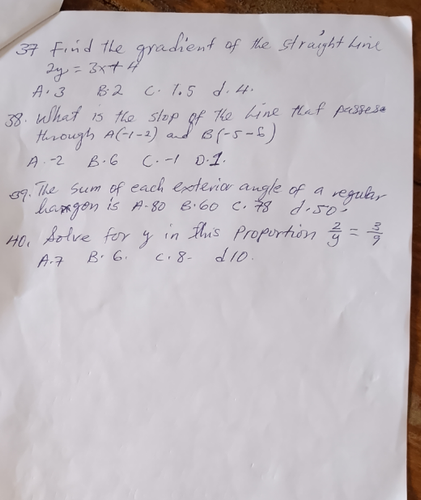 37 Find the gradient of the straight line
2y = 3x + 4
A. 3 B. 2 C. 1.5 d. 4.
38. What is the slop of the line that passes
through A(-1-2) and B(-5-6)
A. -2 B. 6 C. -1 D. 1.
39. The sum of each exterior angle of a regular
haxgon is A. 80 B. 60 C. 78 d. 50.
40. Solve for y in this proportion 2/y = 3/9
A. 7 B. 6. C. 8. d. 10.